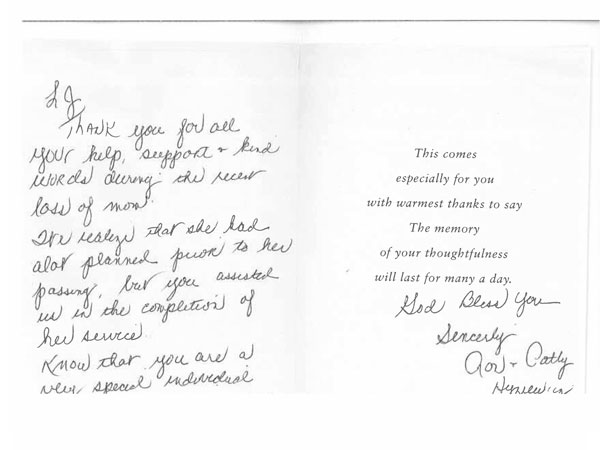 LJ
Thank you for all
your help, support + kind
words during the recent
loss of mom.
I've realize that she had
alot planned prior to her
passing, but you assisted
us in the completion of
her service.
Know that you are a
very special individual
This comes
especially for you
with warmest thanks to say
The memory
of your thoughtfulness
will last for many a day.
God Bless You
Sincerly
+ Cathy